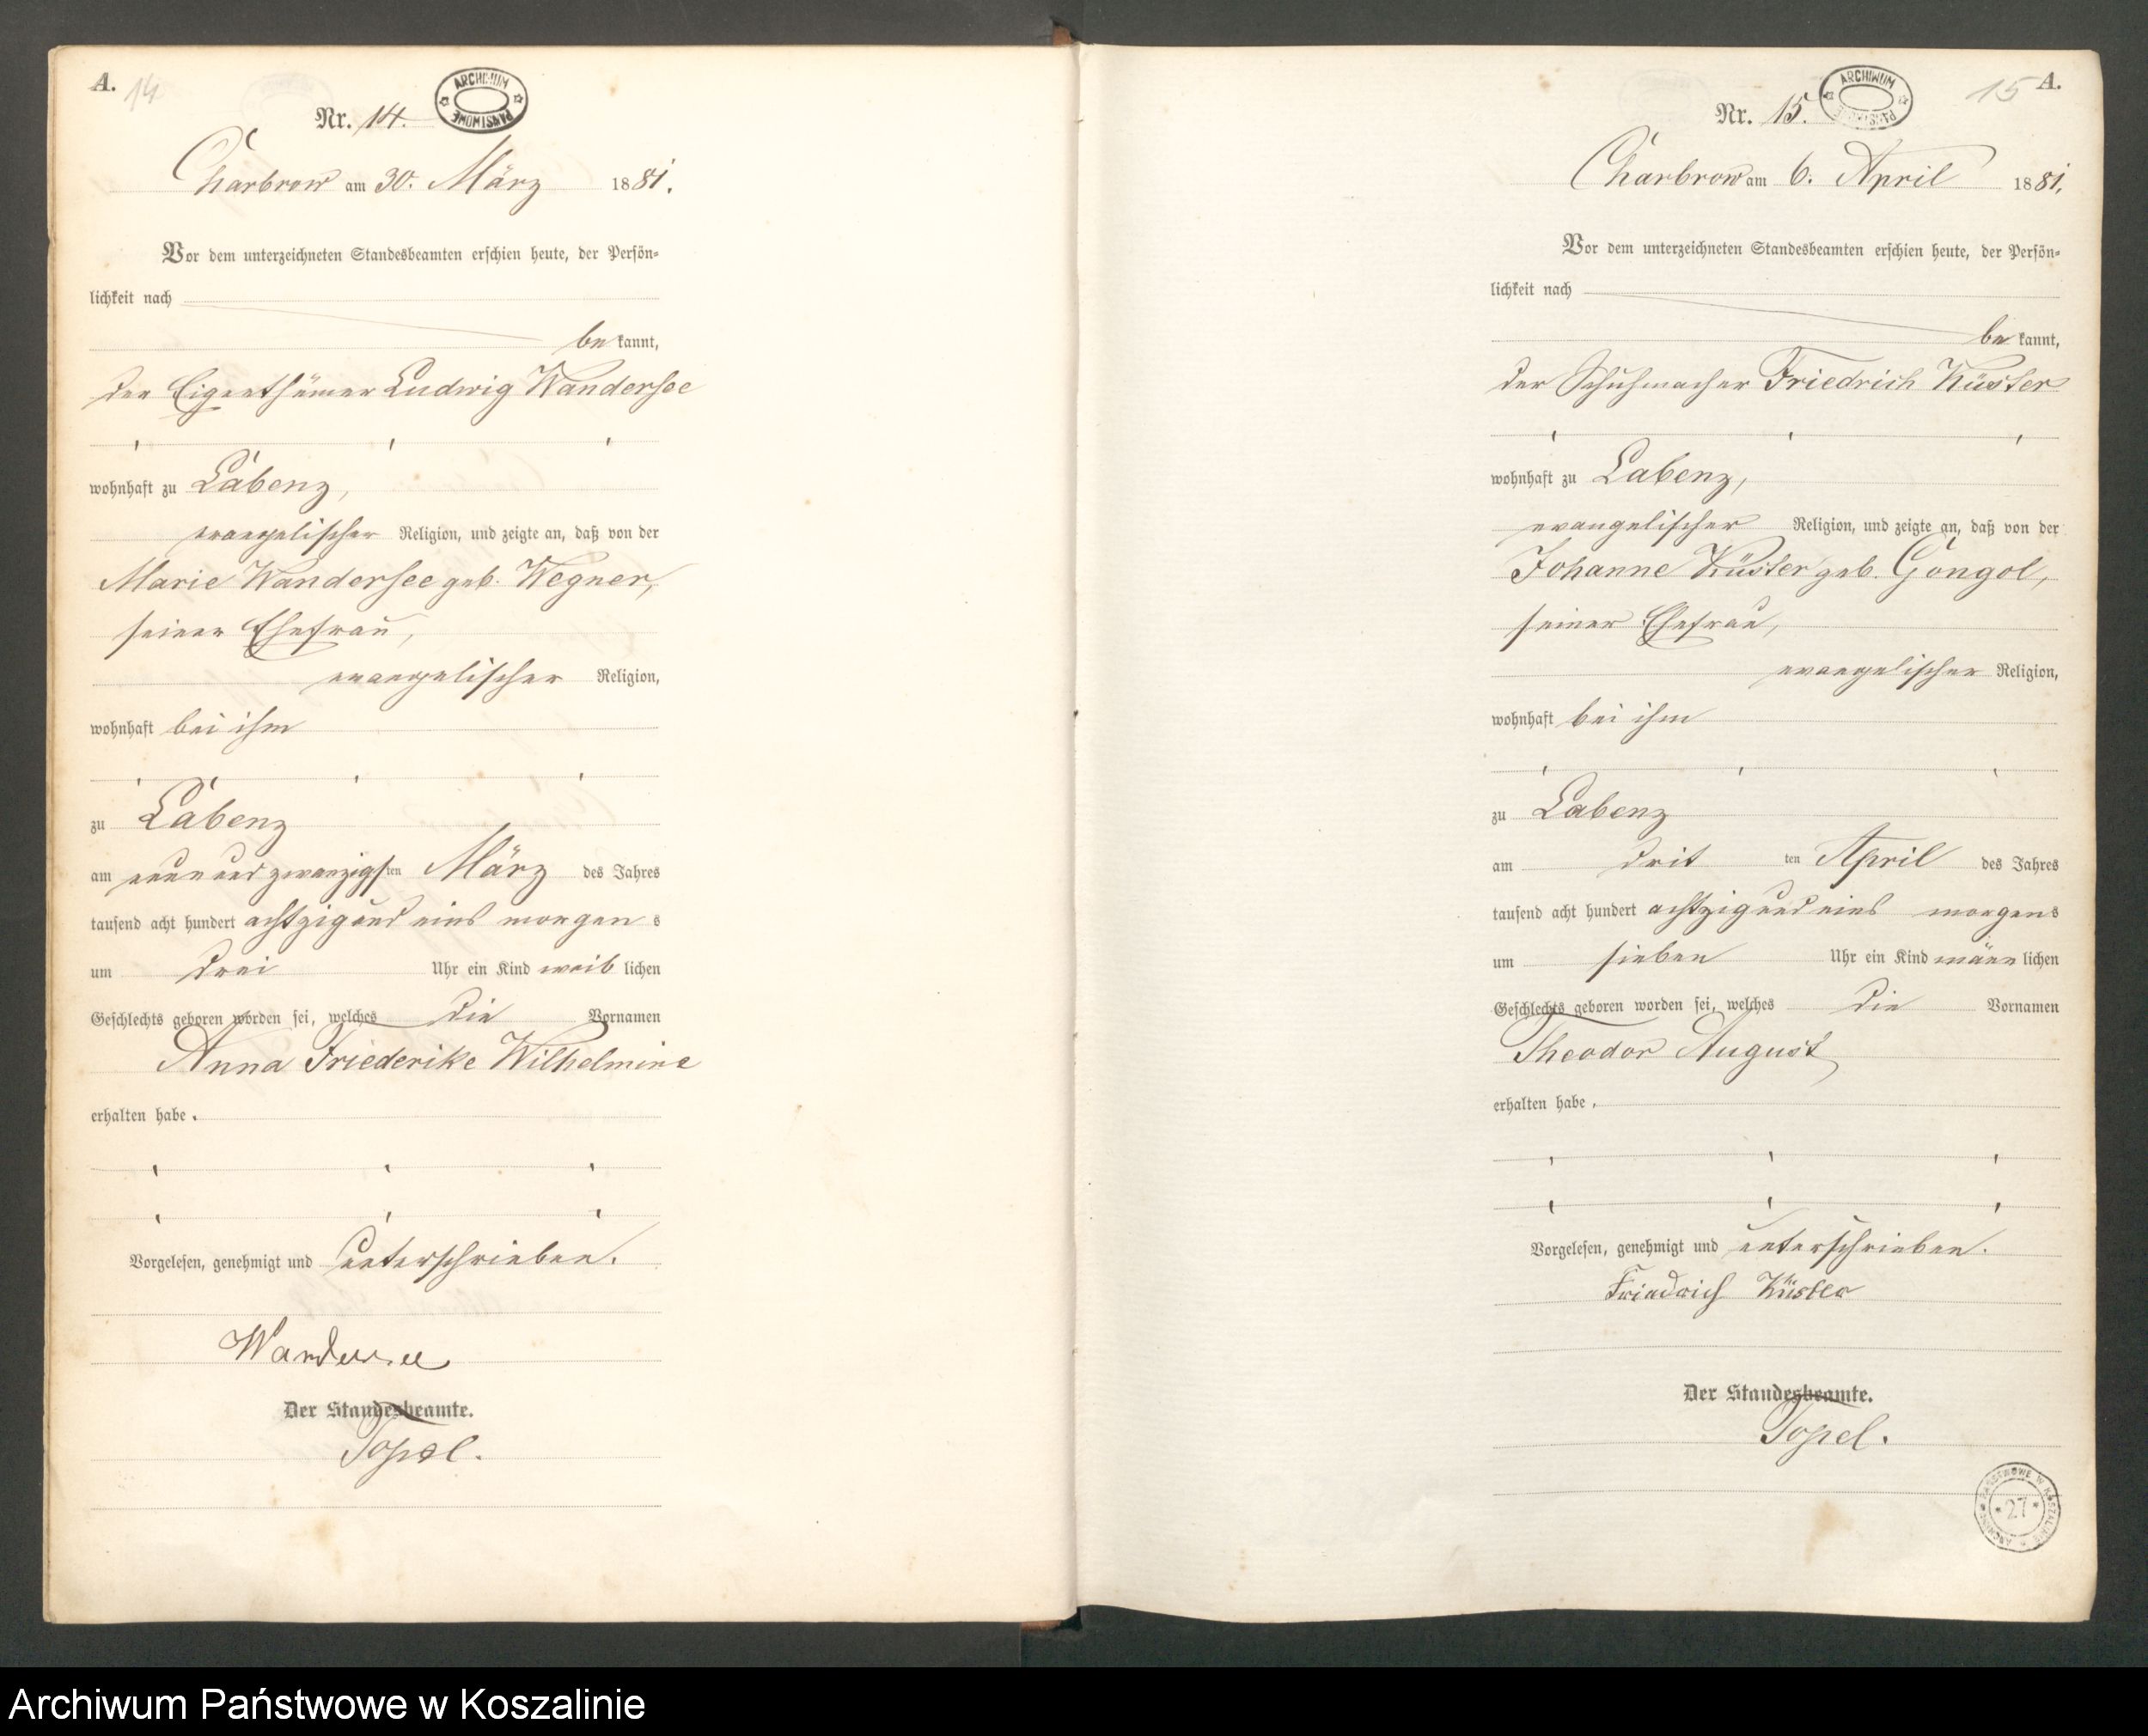 A. 14
ARCHIWUM PAŃSTWOWE
Nr. 14.
Charbrow am 30. März 1881.
Vor dem unterzeichneten Standesbeamten erschien heute, der Persön-
lichkeit nach
be kannt,
der Eigenthümer Ludwig Wandersee
wohnhaft zu Labenz,
evangelischer Religion, und zeigte an, daß von der
Marie Wandersee geb. Wegner,
seiner Ehefrau,
evangelischer Religion,
wohnhaft bei ihm
zu Labenz
am neun und zwanzigsten März des Jahres
tausend acht hundert achtzig und eins morgen s
um drei Uhr ein Kind weib lichen
Geschlechts geboren worden sei, welches die Vornamen
Anna Friederike Wilhelmine
erhalten habe.
Vorgelesen, genehmigt und unterschrieben.
Wandersee
Der Standesbeamte.
Topel.
15 A.
ARCHIWUM PAŃSTWOWE
Nr. 15.
Charbrow am 6. April 1881.
Vor dem unterzeichneten Standesbeamten erschien heute, der Persön-
lichkeit nach
be kannt,
der Schuhmacher Friedrich Küster
wohnhaft zu Labenz,
evangelischer Religion, und zeigte an, daß von der
Johanne Küster geb. Gongol,
seiner Ehefrau,
evangelischer Religion,
wohnhaft bei ihm
zu Labenz
am drit ten April des Jahres
tausend acht hundert achtzig und eins morgens
um sieben Uhr ein Kind männ lichen
Geschlechts geboren worden sei, welches die Vornamen
Theodor August
erhalten habe.
Vorgelesen, genehmigt und unterschrieben.
Friedrich Küster
Der Standesbeamte.
Topel.
ARCHIWUM PAŃSTWOWE W KOSZALINIE
* 27 *
Archiwum Państwowe w Koszalinie